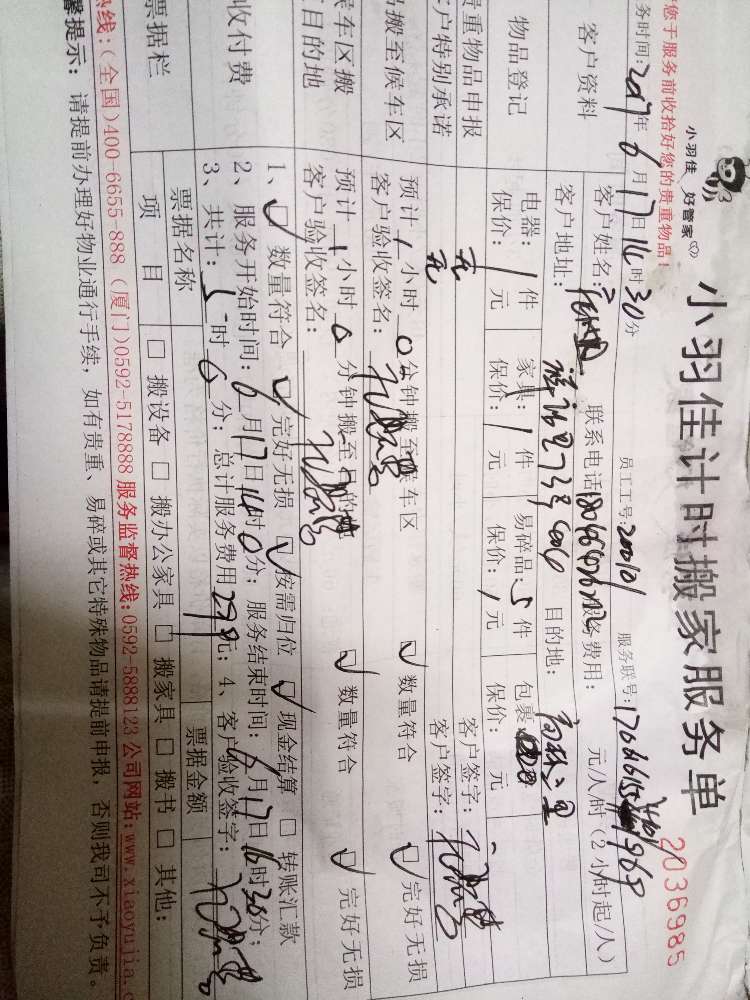 小羽佳 好管家
小羽佳计时搬家服务单
2036985
员工工号:200101 服务联号:
您于服务前收拾好您的贵重物品!
务时间:2017年6月17日14时30分
客户资料
客户姓名: 联系电话 服务费用: 元/人时(2小时起/人)
客户地址: 目的地:
物品登记
电器:1件 家具:1件 易碎品:5件 包裹
保价: 元 保价: 元 保价: 元 保价: 元
贵重物品申报 无 客户签字:
客户特别承诺 无 客户签字:
搬至候车区
预计1小时0分钟搬至候车区 数量符合 完好无损
客户验收签名:
候车区搬
至目的地
预计1小时0分钟搬至目的地 数量符合 完好无损
客户验收签名:
收付费
1、□ 数量符合 完好无损 按需归位 现金结算 □ 转账汇款
2、服务开始时间:6月17日14时0分;服务结束时间:6月17日16时30分;
3、共计: 时0分;总计服务费用 元;4、客户验收签字:
票据栏
票据名称 票据金额
项 目 □ 搬设备 □ 搬办公家具 □ 搬家具 □ 搬书 □ 其他:
热线:(全国)400-6655-888 (厦门)0592-5178888服务监督热线:0592-5888123公司网站:www.xiaoyujia.c
馨提示:请提前办理好物业通行手续,如有贵重、易碎或其它特殊物品请提前申报,否则我司不予负责。